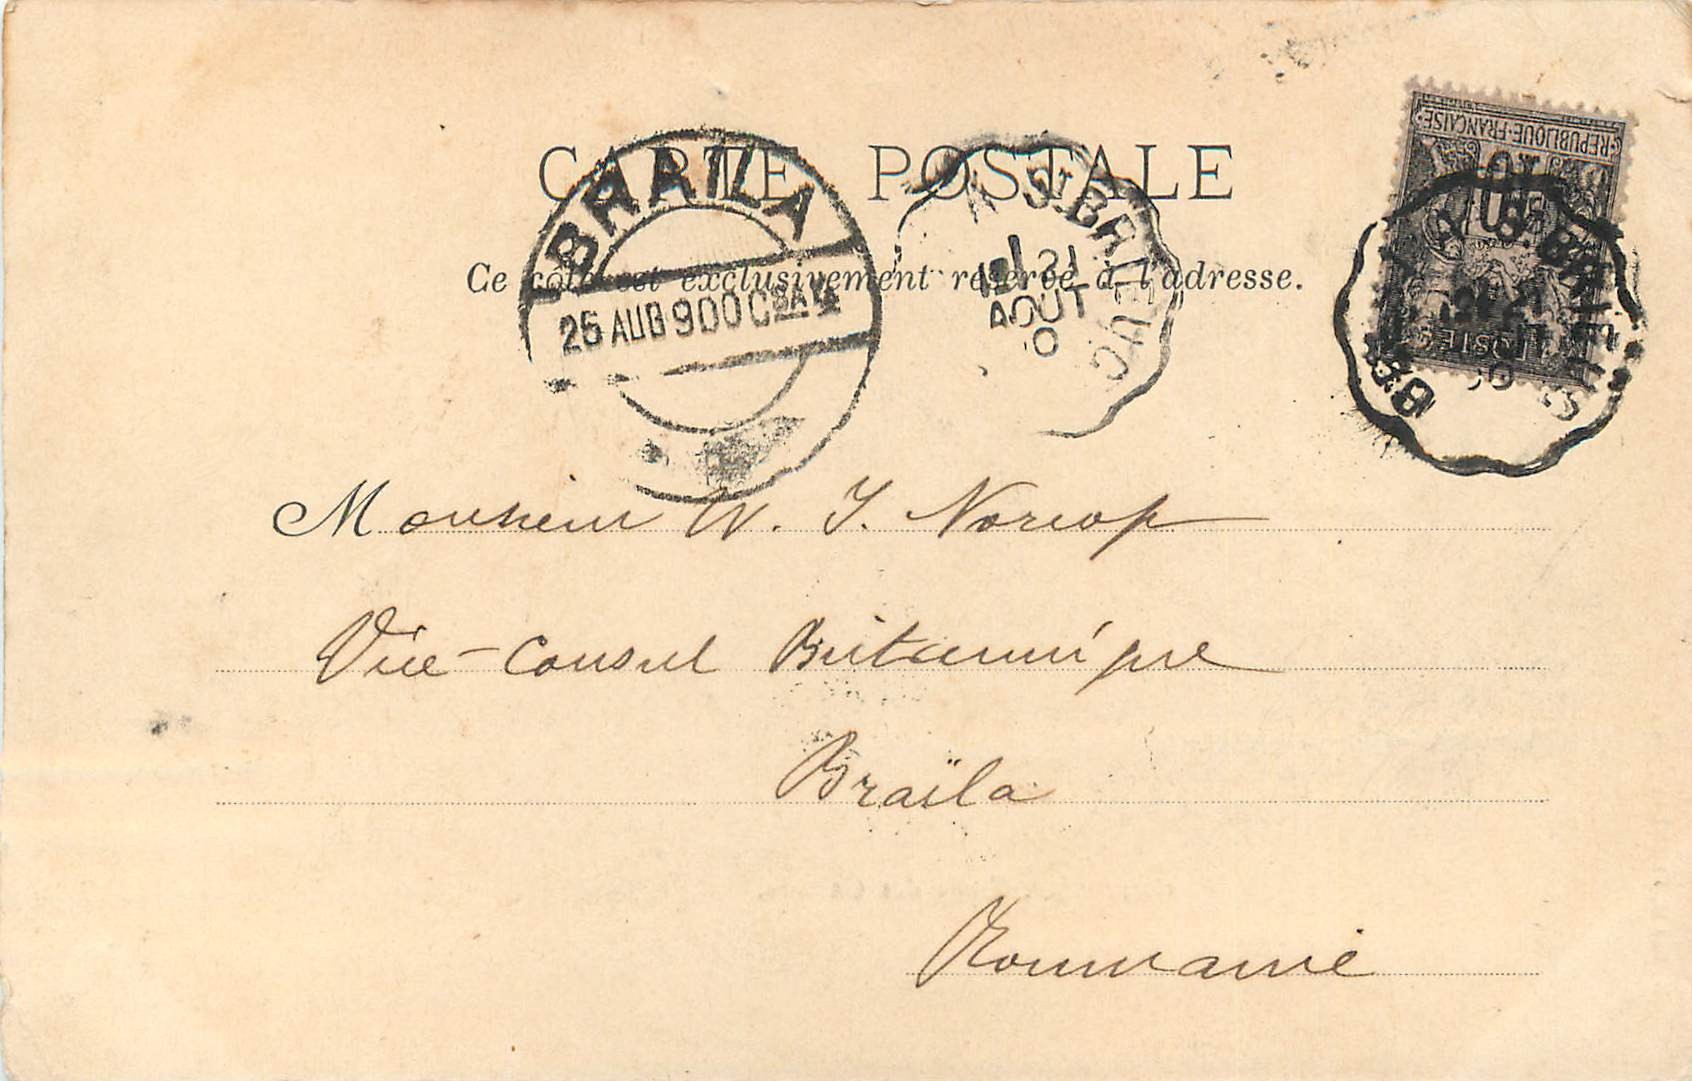 CARTE POSTALE
Ce côté est exclusivement réservé à l'adresse.
BRAILA
25 AUG 900
21
AOUT
REPUBLIQUE FRANÇAISE
10
POSTES
Monsieur W. J. Norcop
Vice-Consul Britannique
Braïla
Roumanie